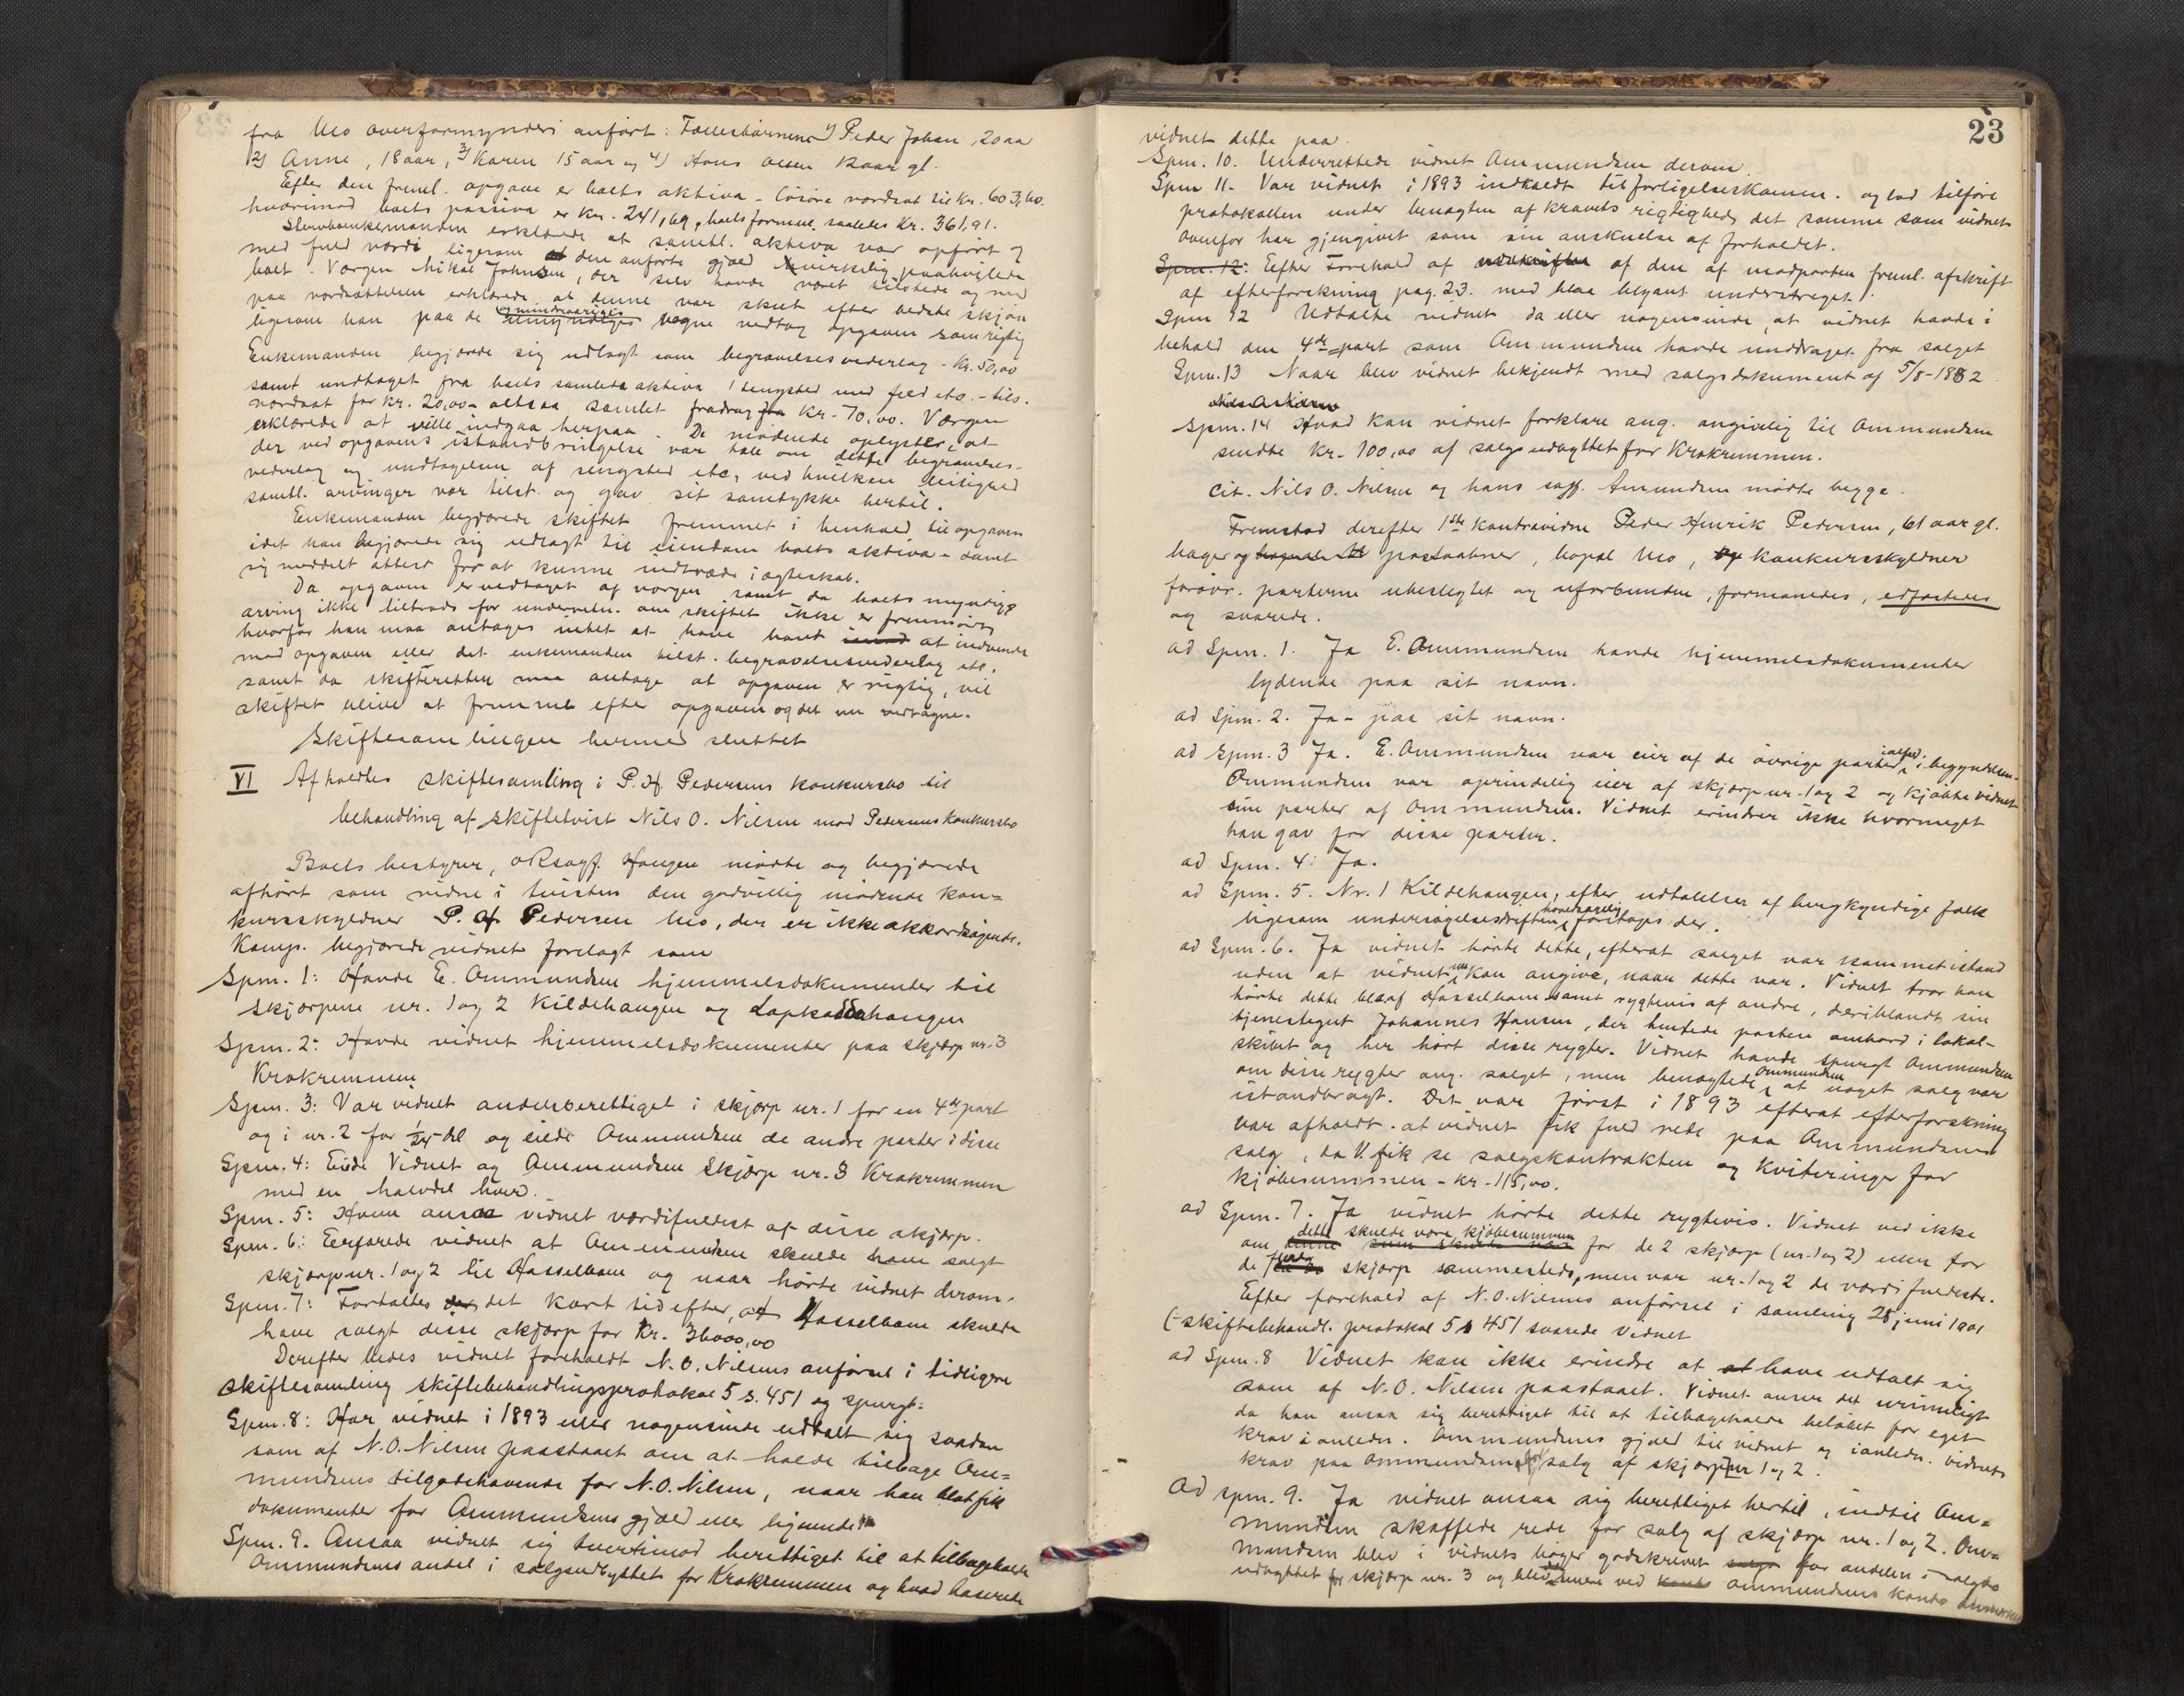 fra Mo overformynderi anført: Fællesbørnene 1) Peder Johan, 20 aa
2) Anne, 18 aar, 3) Karen 15 aar og 4) Hans Olsen 12 aar gl.
Efter den freml. opgave er boets aktiva - løsøre værdsat til kr. 603,60.
hvorimod boets passiva er kr. 241,69, boets formue saaledes kr. 361,91.
Stervboenkemanden erklærede at samtl. aktiva var opført og
med fuld værdi ligesom at den anførte gjæld virkelig paahvilede
boet. Vergen Mikal Johnsen, der selv havde været tilstede og med
paa værdsættelsen erklærede at denne var skeet efter bedste skjøn
ligesom han paa de umyndiges mindreaariges vegne vedtog opgaven som rigtig
Enkemanden begjærede sig udlagt som begravelsesvederlag - kr. 50,00
samt undtaget fra boets samlede aktiva 1 sengsted med feld etc. - tils.
værdsat for kr. 20,00 - altsaa samlet fradrag kr. 70,00. Vergen
erklærede at ville indgaa herpaa. De mødende oplyster, at
der ved opgavens istandbringelse var tale om dette begravelses-
vederlag og undtagelsen af sengsted etc, ved hvilken leilighed
samtl. arvinger var tilst. og gav sit samtykke hertil.
Enkemanden begjærede skiftet fremmet i henhold til opgaven
idet han begjærede sig udlagt til eiendom boets aktiva - samt
sig meddelt attest for at kunne indtræde i ægteskab.
Da opgaven er vedtaget af vergen samt da boets myndige
arving ikke tiltrods for underretn. om skiftet ikke er fremmødt
hvorfor han maa antages intet at have havt imod at indvende
mod opgaven eller det enkemanden tilst. begravelsesvederlag etc.
samt da skifteretten maa antage at opgaven er rigtig, vil
skiftet blive at fremme efter opgaven og det nu vedtagne.
Skiftesamlingen hermed sluttet
VI Afholdtes skiftesamling i P. H. Pedersens konkursbo til
behandling af skiftetvist Nils O. Nilsen mod Pedersens konkursbo
Boets bestyrer, oRsagf. Haugen mødte og begjærede
afhørt som vidne i tvisten den godvillig mødende kon=
kursskyldner P. H. Pedersen Mo, der er ikke akkordsøgende.
Komp. begjærede vidnet forelagt som
Spm. 1: Havde E. Ammundsen hjemmelsdokumenter til
skjærpene nr. 1 og 2 Kildehaugen og Lapkaddahaugen
Spm. 2: Havde vidnet hjemmelsdokumenter paa skjærp nr. 3
Krakremmen
Spm. 3: Var vidnet andelsberettiget i skjærp nr. 1 for en 4de part
og i nr. 2 for 1/24 del og eiede Ammundsen de andre parter i disse
Spm. 4: Eiede Vidnet og Ammundsen Skjærp nr. 3 Krakremmen
med en halvdel hver.
Spm. 5: Hvem ansaa vidnet værdifuldest af disse skjærp.
Spm. 6: Erfarede vidnet at Ammundsen skulde have solgt
skjærp nr. 1 og 2 til Hasselbom og naar hørte vidnet derom.
Spm. 7: Fortaltes det kort tid efter, at Hasselbom skulde
have solgt disse skjærp for kr. 36000,00
Derefter bedes vidnet foreholdt N. O. Nilsens anførsel i tidligere
skiftesamling skiftebehandlingsprotokol 5 s. 451 og spurgt:
Spm. 8: Har vidnet i 1893 eller nogensinde udtalt sig saadan
som af N. O. Nilsen paastaaet om at holde tilbage Am=
mundsens tilgodehavende for N. O. Nilsen, naar han blot fik
dokumenter for Ammundsens gjæld eller lignende
Spm. 9. Ansaa vidnet sig tvertimod berettiget til at tilbageholde
Ammundsens andel i salgsudbyttet for Krakremmen og hvad baserede
23
vidnet dette paa.
Spm. 10. Underrettede vidnet Ammundsen derom
Spm 11. Var vidnet i 1893 indkaldt til forligelseskomm. og lod tilføre
protokollen under benægten af kravets rigtighed, det samme som vidnet
ovenfor har gjengivet som sin anskuelse af forholdet.
Spm. 12: Efter Forehold af udskriften af den af modparten freml. afskrift
af efterforskning pag. 23. med blaa blyant understreget.
Spm 12 Udtalte vidnet da eller nogensinde, at vidnet havde i
behold den 4de part som Ammundsen havde unddraget fra salget
Spm. 13 Naar blev vidnet bekjendt med salgsdokument af 5/8-1882
Spm. 14 Hvad kan vidnet forklare ang. angivelig til Ammundsen
sendte kr. 100,00 af salgsudbyttet for Krakremmen.
Cit. Nils O. Nilsen og hans sagf. Amundsen mødte begge.
Fremstod derefter 1ste kontravidne Peder Henrik Pedersen, 61 aar gl.
bager og postaabner, bopæl Mo, konkursskyldner
forøvr. parterne ubeslegtet og uforbunden, formanedes, edfæstedes
og svarede.
ad Spm. 1. Ja E. Ammundsen havde hjemmelsdokumenter
lydende paa sit navn.
ad Spm. 2. Ja - paa sit navn.
ad Spm. 3 Ja. E. Ammundsen var eier af de øvrige parter, ialfald i begyndelsen.
Ammundsen var oprindelig eier af skjærp nr. 1 og 2 og kjøbte vidnet
sine parter af Ammundsen. Vidnet erindrer ikke hvormeget
han gav for disse parter.
ad Spm. 4: Ja.
ad Spm. 5. Nr. 1 Kildehaugen, efter udtalelser af bergkyndige folk
ligesom undersøgelsesdriften hovedsagelig foretages der.
ad Spm. 6. Ja vidnet hørte dette, efterat salget var kommet istand
uden at vidnet nu kan angive, naar dette var. Vidnet tror han
hørte dette bl. af Hasselbom samt rygtevis af andre, deriblandt sin
tjenestegut Johannes Hansen, der hentede posten ombord i lokal-
skibet og her hørt disse rygter. Vidnet havde spurgt Ammundsen
om disse rygter ang. salget, men benægtede Ammundsen at noget salg var
istandbragt. Det var først i 1893 efterat efterforskning
var afholdt. at vidnet fik fuld rede paa Ammundsens
salg, da V. fik se salgskontrakten og kvitteringer for
kjøbesummen - kr. 115,00.
ad Spm. 7. Ja vidnet hørte dette rygtevis. Vidnet ved ikke
om dette skulde være kjøbesummen for de 2 skjærp (nr. 1 og 2) eller for
de flere skjærp sammesteds, men var nr. 1 og 2 de værdifuldeste.
Efter forehold af N. O. Nilsens anførsel i samling 28 juni 1901
(skiftebehandl. protokol 5 s 451 svarede Vidnet
ad Spm. 8 Vidnet kan ikke erindre at have udtalt sig
som af N. O. Nilsen paastaaet. Vidnet anser det urimeligt
da han ansaa sig berettiget til at tilbageholde beløbet for eget
krav i anledn. Ammundsens gjæld til vidnet og i anledn. vidnets
krav paa Ammundsen for salg af skjærp nr 1 og 2.
Ad spm. 9. Ja vidnet ansaa sig berettiget hertil, indtil Am=
mundsen skaffede rede for salg af skjærp nr. 1 og 2. Am=
mundsen blev i vidnets bøger godskrevet for andelen i salgs
udbyttet for skjærp nr. 3 og blev ved Ammundsens konto